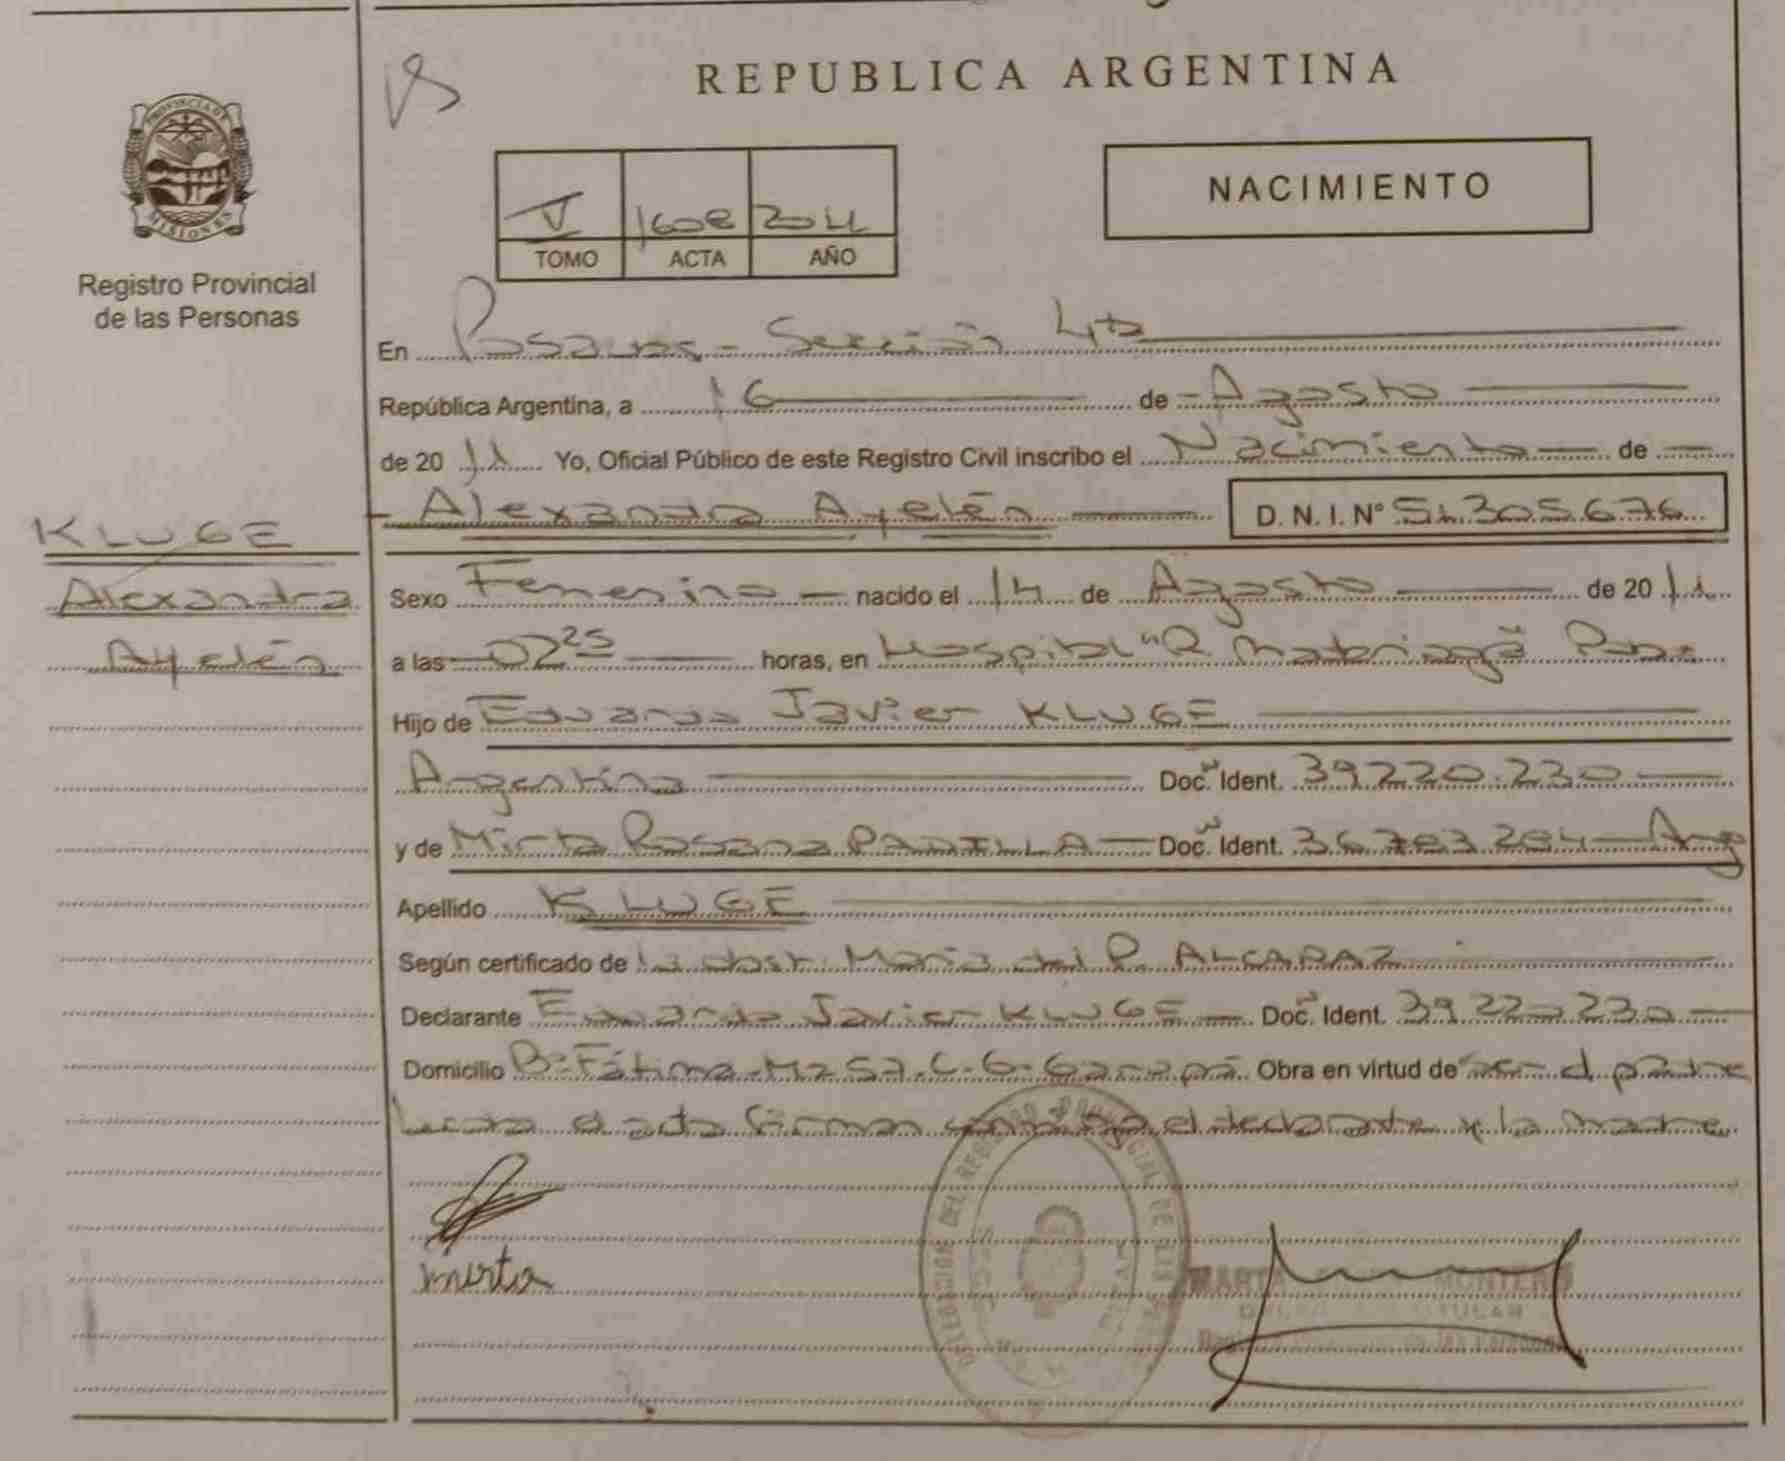 REPUBLICA ARGENTINA
PROVINCIA DE MISIONES
Registro Provincial
de las Personas
V 1608 2011
TOMO ACTA AÑO
NACIMIENTO
En Posadas - Sección 4ta
República Argentina, a 16 de Agosto
de 20 11 Yo, Oficial Público de este Registro Civil inscribo el Nacimiento de
Alexandra Ayelén D. N. I. N° 51.305.676
KLUGE
Alexandra
Ayelén
Sexo Femenino nacido el 14 de Agosto de 20 11
a las 02 25 horas, en Hospital "R. Madariaga" Pdas
Hijo de Eduardo Javier KLUGE
Argentina Doc. Ident. 39.220.230
y de Mirta Rosana PADILLA Doc. Ident. 36.783.284 Arg
Apellido KLUGE
Según certificado de la obst. María del P. ALCARAZ
Declarante Eduardo Javier KLUGE Doc. Ident. 39.220.230
Domicilio B° Fátima - Mz 57 - C - 6 - Garupá Obra en virtud de ser el padre
el acta firman conmigo el declarante y la madre
mirta
DELEGACION DEL REGISTRO PROVINCIAL DE LAS
MARTA MONTERO
TITULAR
de las Personas